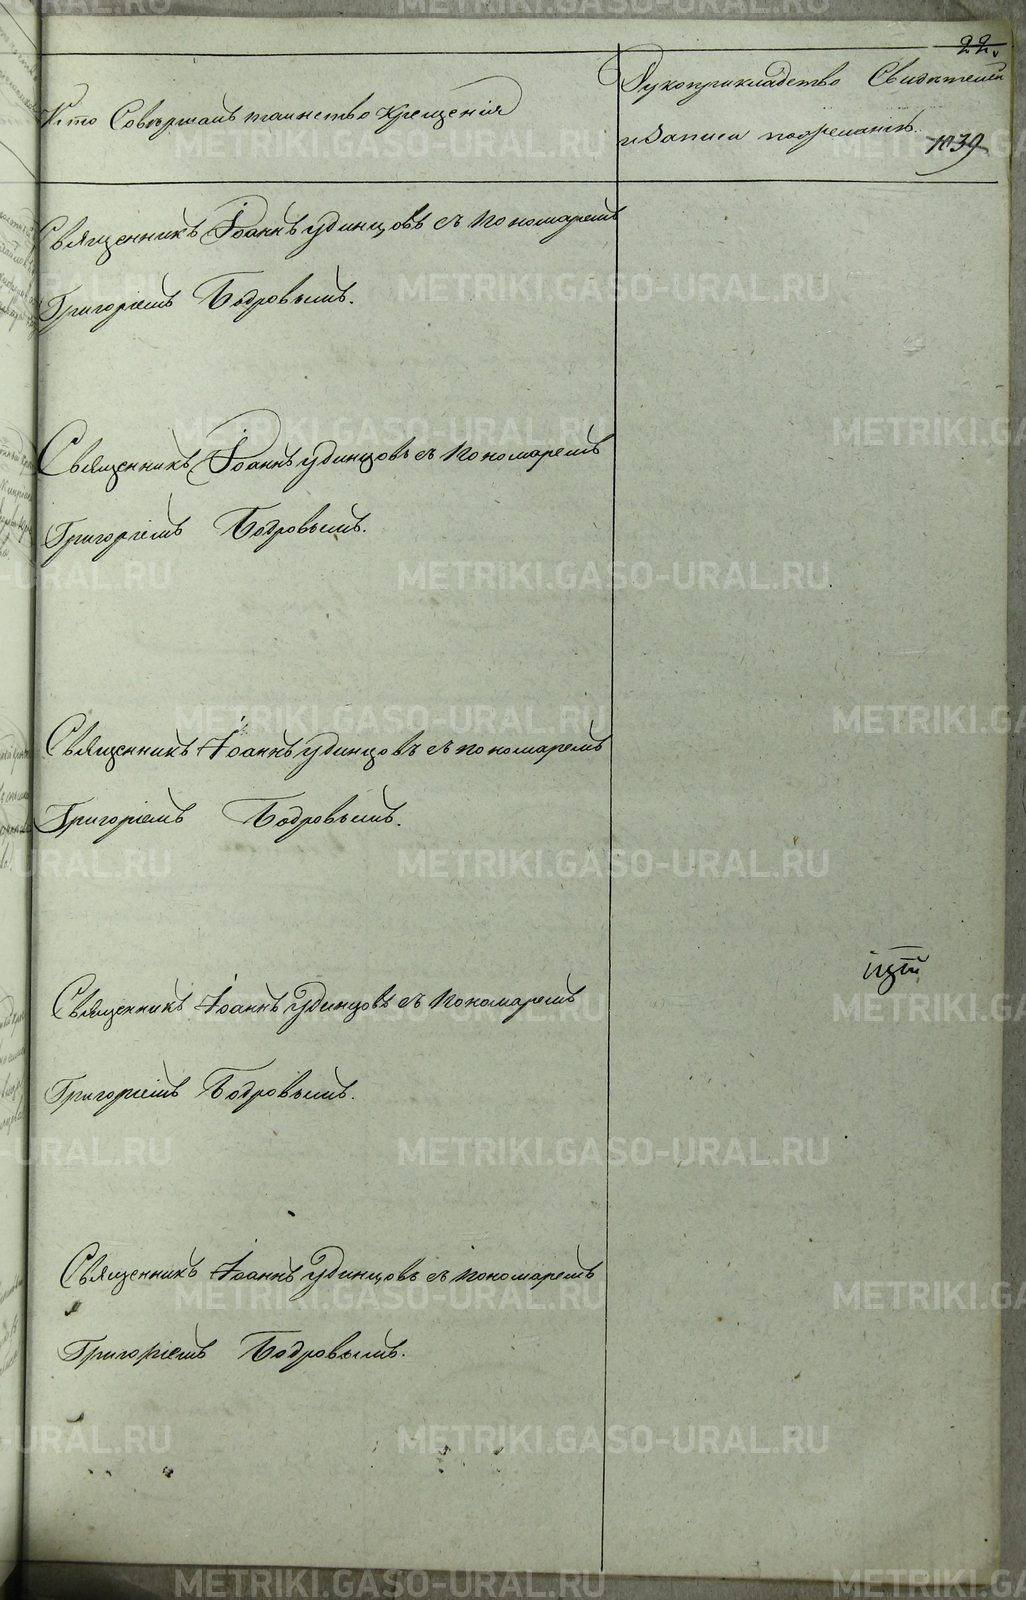 22.
Кто Совершалъ таинство крещенія
Рукоприкладство Свидѣтелей
и Записи
1039
Священникъ Іоаннъ Удинцовъ съ Пономаремъ
Григоріемъ Бодровымъ.
Священникъ Іоаннъ Удинцовъ съ Пономаремъ
Григоріемъ Бодровымъ.
Священникъ Іоаннъ Удинцовъ съ пономаремъ
Григоріемъ Бодровымъ.
Священникъ Іоаннъ Удинцовъ съ Пономаремъ
Григоріемъ Бодровымъ.
Священникъ Іоаннъ Удинцовъ съ Пономаремъ
Григоріемъ Бодровымъ.
METRIKI.GASO-URAL.RU